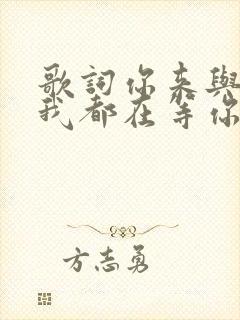 歌詞你来與
我都在等你
方志勇